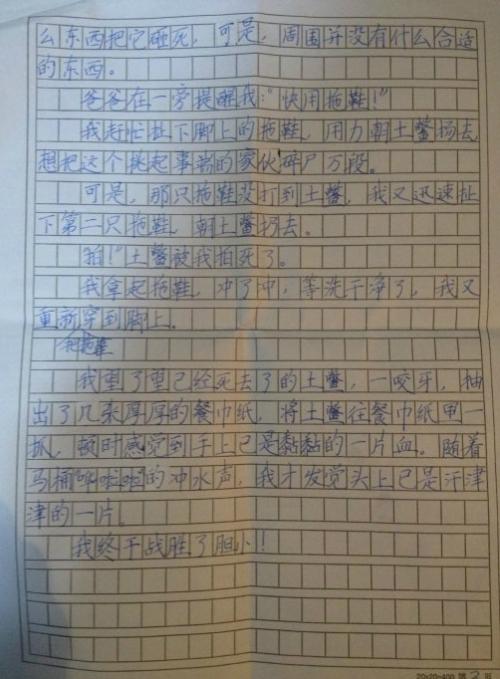 么东西把它砸死，可是，周围并没有什么合适
的东西。
爸爸在一旁提醒我："快用拖鞋！"
我赶忙扯下脚上的拖鞋，用力朝土鳖扔去
想把这个挑起事端的家伙碎尸万段。
可是，那只拖鞋没打到土鳖，我又迅速扯
下第二只拖鞋，朝土鳖扔去。
"拍！"土鳖被我拍死了。
我拿起拖鞋，冲了冲，等洗干净了，我又
重新穿到脚上。
把拖鞋
我望了望已经死去了的土鳖，一咬牙，抽
出了几张厚厚的餐巾纸，将土鳖往餐巾纸里一
抓，顿时感觉到手上已是黏黏的一片血。随着
马桶"哗啦啦"的冲水声，我才发觉头上已是汗津
津的一片。
我终于战胜了胆小！
20×20=400 第3页